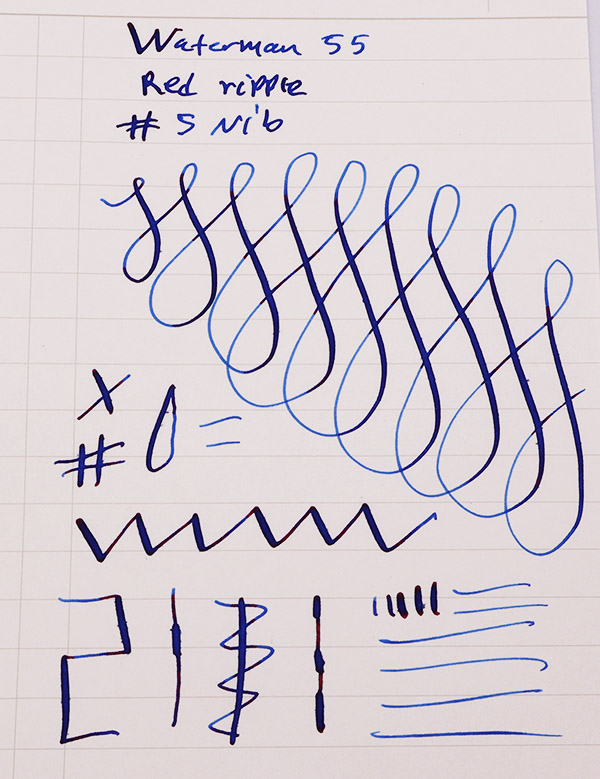 Waterman 55
Red ripple
# 5 Nib
X
#